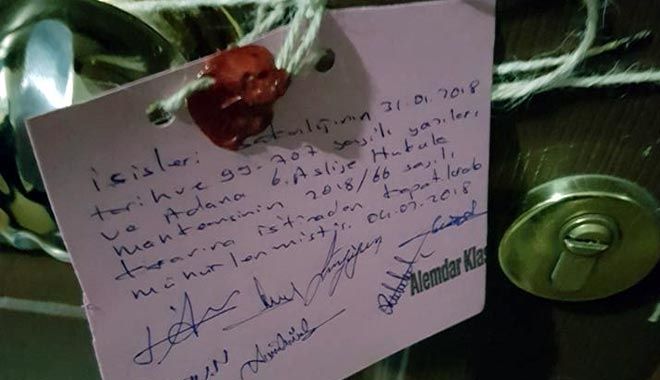 İçişleri Bakanlığının 31.01.2018
tarih ve 99-707 sayılı yazıları
ve Adana 6. Asliye Hukuk
mahkemesinin 2018/66 sayılı
kararına istinaden kapatılarak
mühürlenmiştir. 04.07.2018
Alemdar Klas